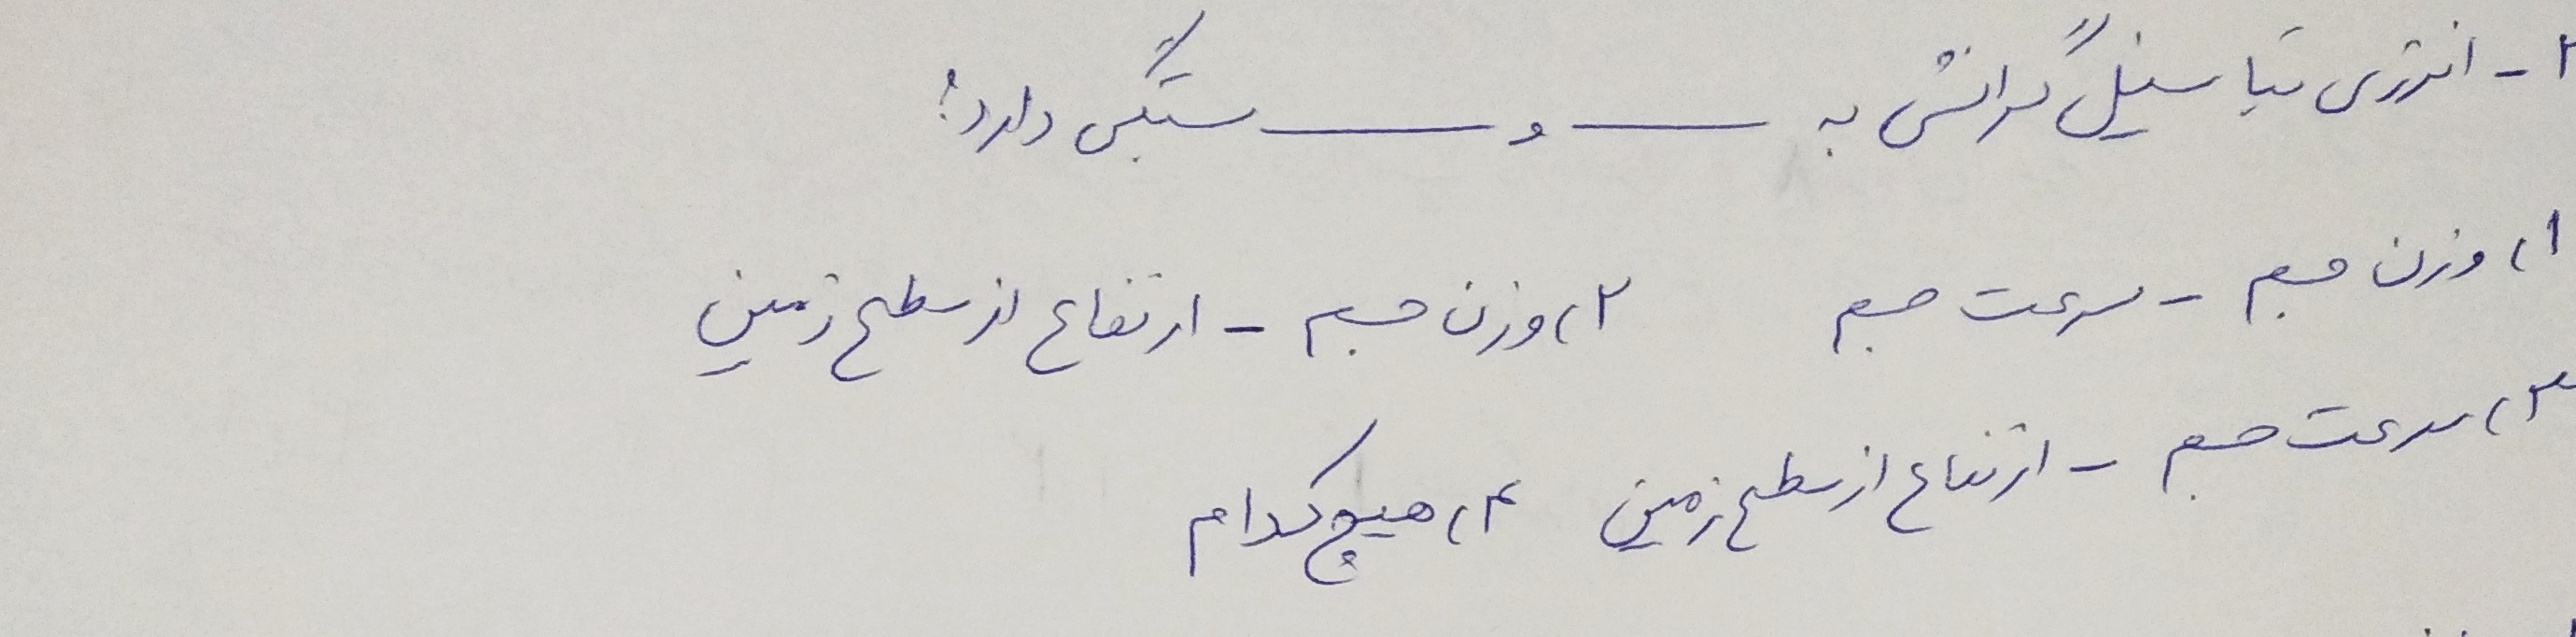 ۲- انرژی پتانسیل گرانش به ــــــ و ــــــ بستگی دارد؟
۱) وزن جسم - سرعت جسم ۲) وزن جسم - ارتفاع از سطح زمین
۳) سرعت جسم - ارتفاع از سطح زمین ۴) هیچ کدام